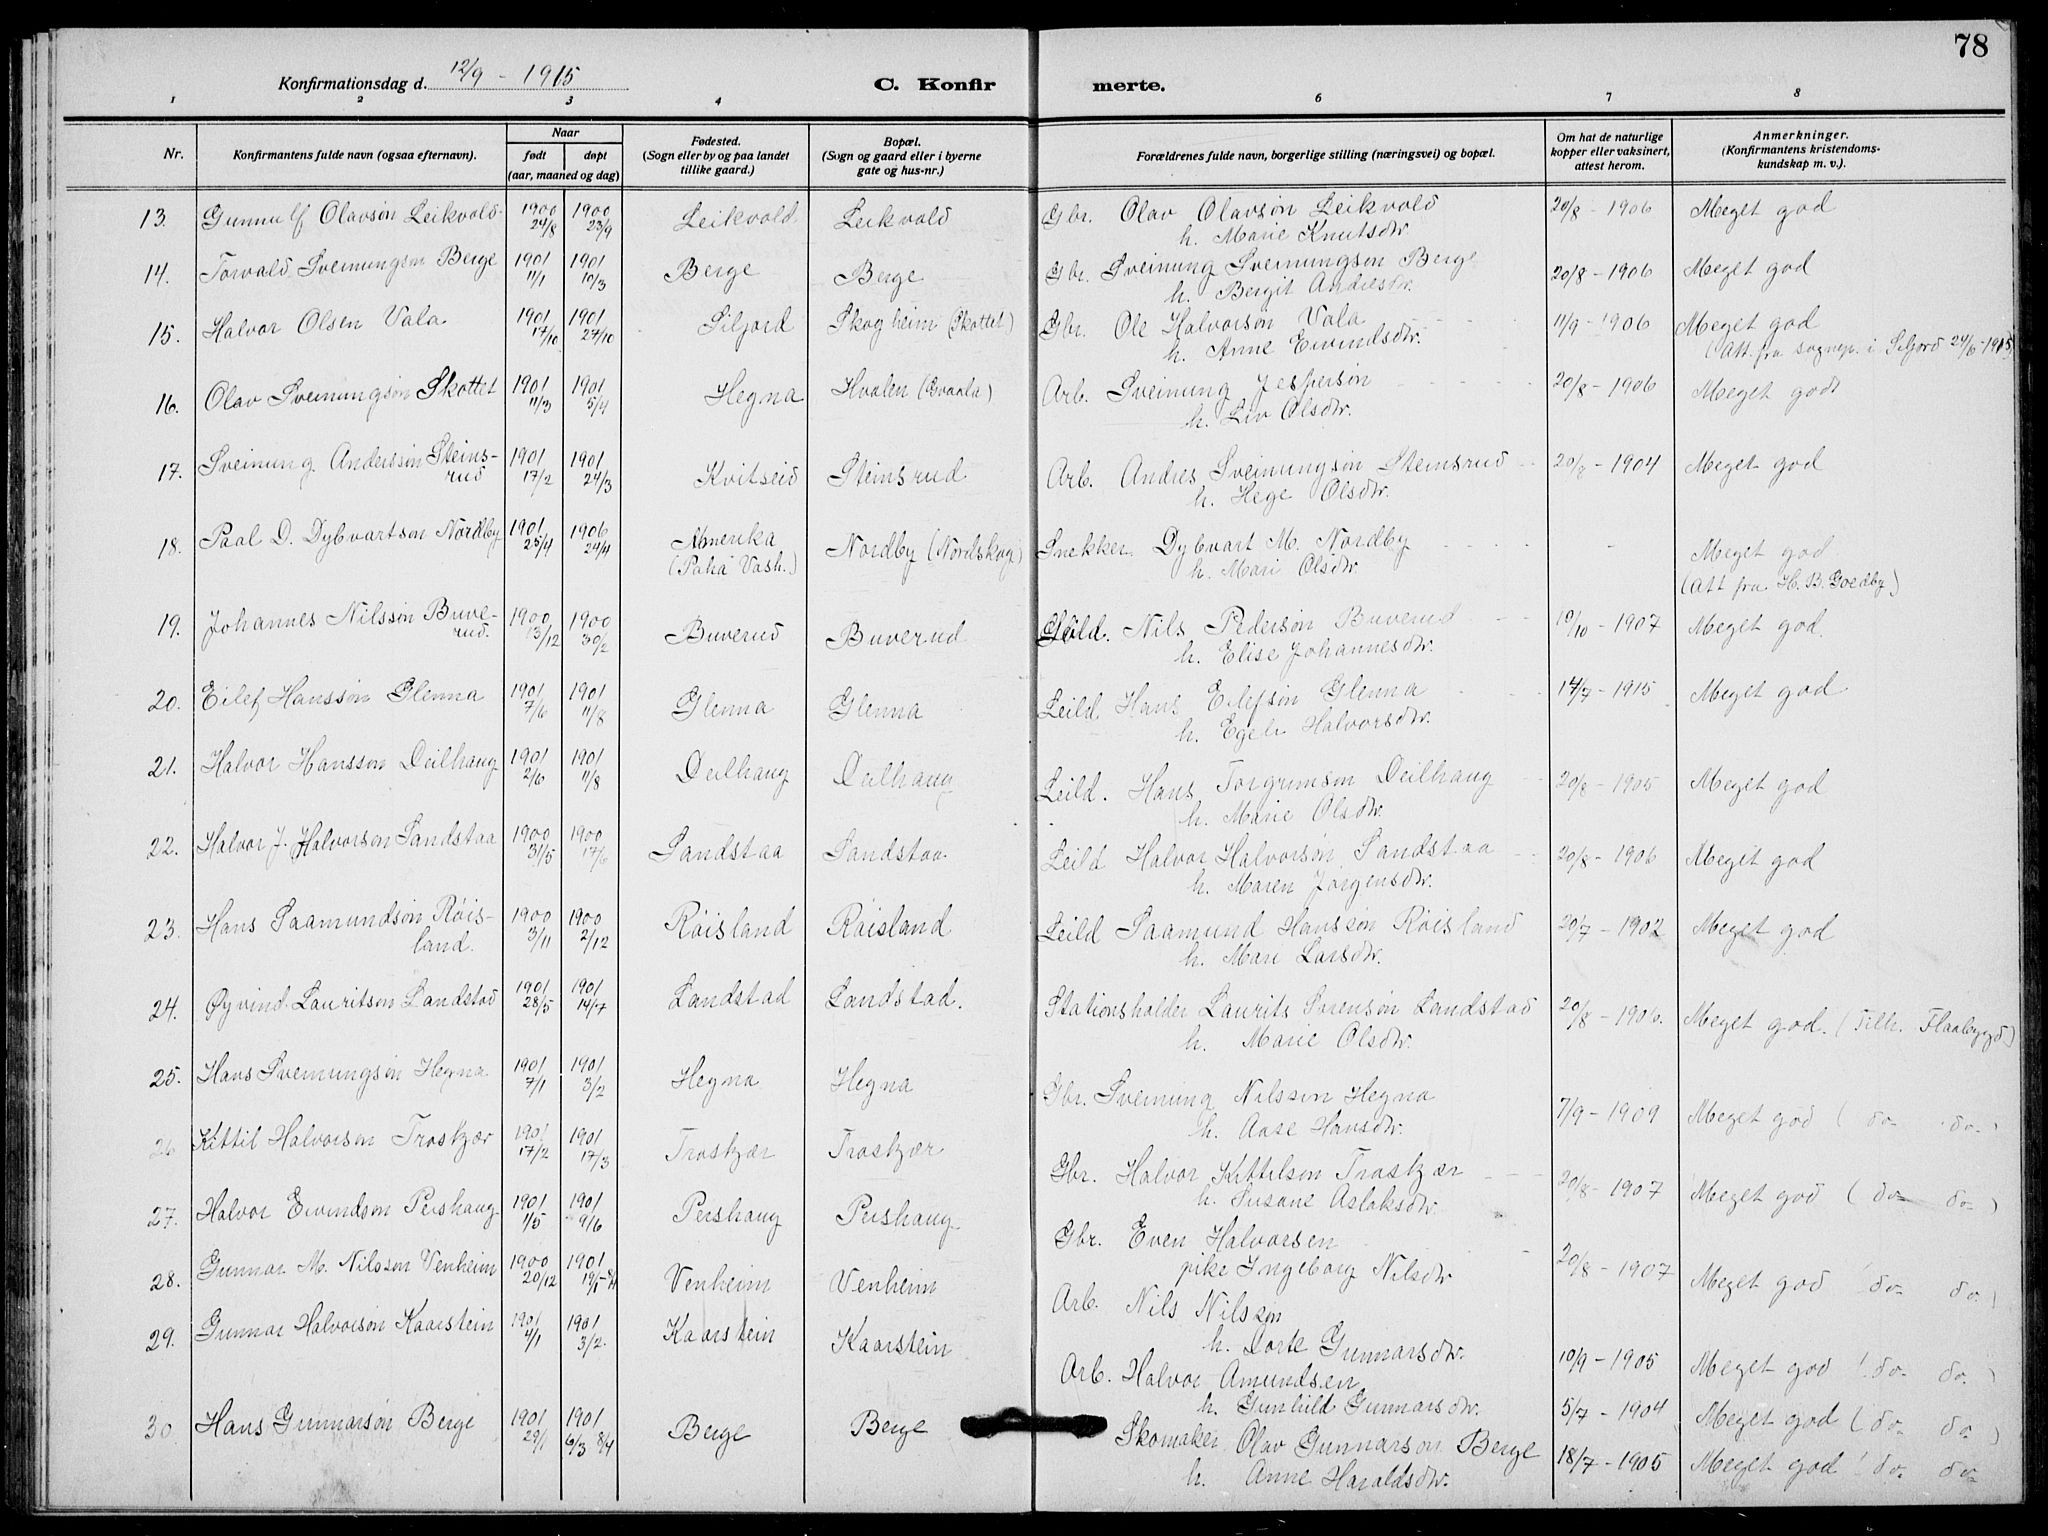 78
Konfirmationsdag d. 12/9 - 1915 C. Konfir merte.
1 2 3 4 6 7 8
Nr. Konfirmantens fulde navn (ogsaa efternavn). Naar født døpt (aar, maaned og dag) Fødested. (Sogn eller by og paa landet tillike gaard.) Bopæl. (Sogn og gaard eller i byerne gate og hus-nr.) Forældrenes fulde navn, borgerlige stilling (næringsvei) og bopæl. Om hat de naturlige kopper eller vaksinert, attest herom. Anmerkninger. (Konfirmantens kristendoms-kundskap m. v.).
13. Gunnulf Olavsøn Leikvold 1900 29/8 1900 23/9 Leikvold Leikvold Gbr. Olav Olavsøn Leikvold 20/8 - 1906 Meget god
h. Marie Knutsdtr.
14. Torvald Sveinungsøn Berge 1901 11/1 1901 10/3 Berge Berge Gbr. Sveinung Sveinungsøn Berge 20/8 - 1906 Meget god
h. Bergit Andresdtr.
15. Halvor Olsen Vala 1901 17/10 1901 27/10 Siljord Skogheim (Skottet) Gbr. Ole Halvorsøn Vala 11/9 - 1906 Meget god
h. Anne Eivindsdtr. (Att. fra sognep. i Siljord 24/6-1915)
16. Olav Sveinungsøn Skottet 1901 11/3 1901 5/4 Hegna Hvalen (Gvaala) Arb. Sveinung Jespersøn 20/8 - 1906 Meget godt
h. Liv Olsdtr.
17. Sveinung Anderssøn Steins- 1901 17/2 1901 24/3 Kvitseid Steinsrud Arb. Andres Sveinungsøn Steinsrud 20/8 - 1904 Meget god
rud h. Hege Olsdtr.
18. Paal D. Dybvartsøn Nordby 1901 25/4 1906 24/4 Amerika Nordby (Nordskog) Snekker Dybvart M. Nordby - Meget god
(Paha Vash.) h. Mari Olsdtr. (Att fra H. B. Goedby)
19. Johannes Nilssøn Buve- 1900 13/12 1900 30/2 Buverud Buverud Leild. Nils Pedersøn Buverud 10/10 - 1907 Meget god.
rud. h. Elise Johannesdtr.
20. Eilef Hanssøn Glenna 1901 7/6 1901 11/8 Glenna Glenna Leild Hans Eilefsøn Glenna 14/7 - 1915 Meget god
h. Egele Halvorsdtr.
21. Halvor Hanssøn Deilhaug 1901 2/6 1901 11/8 Deilhaug Deilhaug Leild. Hans Torgrimsøn Deilhaug 20/8 - 1905 Meget god
h. Marie Olsdtr.
22. Halvor J. Halvorsøn Sandstaa 1900 31/5 1900 17/6 Sandstaa Sandstaa. Leild Halvor Halvorsøn Sandstaa 20/8 - 1906 Meget god
h. Maren Jørgensdtr.
23. Hans Saamundsøn Røis- 1900 3/11 1900 2/12 Røisland Røisland Leild Saamund Hanssøn Røisland 20/7 - 1902 Meget god
land. h. Mari Larsdtr.
24. Øyvind Lauritsøn Landstad 1901 28/5 1901 14/7 Landstad Landstad. Stationsholder Laurits Sørensøn Landstad 20/8 - 1906. Meget god. (Tilh. Flaabygd)
h. Marie Olsdtr.
25. Hans Sveinungsøn Hegna 1901 7/1 1901 3/2 Hegna Hegna Gbr. Sveinung Nilssøn Hegna 7/9 - 1909 Meget god ( do do. )
h. Aase Hansdtr.
26 Kittil Halvorsøn Troskjær 1901 17/2 1901 17/3 Troskjær Troskjær Gbr. Halvor Kittilsøn Troskjær 20/8 - 1907 Meget god ( do do )
h. Susane Aslaksdtr.
27. Halvor Eivindsøn Pershaug 1901 1/5 1901 9/6 Pershaug Pershaug Gbr. Even Halvorsen 20/8 - 1907 Meget god ( do do. )
pike Ingeborg Nilsdtr
28. Gunnar M. Nilssøn Venheim 1900 20/12 1901 Venheim Venheim Arb. Nils Nilssøn 10/9 - 1905 Meget god ( do do. )
h. Dorte Gunnarsdtr.
29. Gunnar Halvorsøn Kaarstein 1901 4/1 1901 3/2 Kaarstein Kaarstein Arb. Halvor Amundsen 5/7 - 1904 Meget god ( do do )
h. Gunhild Gunnarsdtr.
30 Hans Gunnarsøn Berge 1901 29/1 1901 6/3 8/4 Berge Berge Skomaker Olav Gunnarsøn Berge 18/7 - 1905 Meget god ( do do
h. Anne Haraldsdtr.